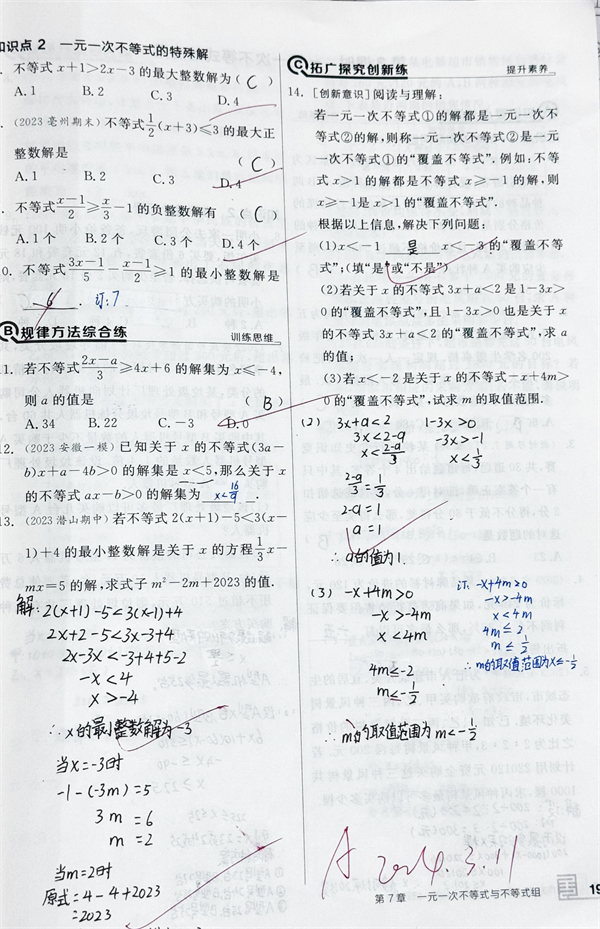 知识点 2 一元一次不等式的特殊解
不等式x+1>2x-3的最大整数解为( C )
A.1 B.2 C.3 D.4
(2023 亳州期末)不等式1/2(x+3)≤3的最大正
整数解是 ( C )
A.1 B.2 C.3 D.4
不等式(x-1)/2≥x/3-1的负整数解有 ( C )
A.1个 B.2个 C.3个 D.4个
10. 不等式(3x-1)/5-(x-1)/2≥1的最小整数解是
6 . 订:7
B 规律方法综合练 训练思维
11. 若不等式(2x-a)/3≥4x+6的解集为x≤-4,
则a的值是 ( B )
A.34 B.22 C.-3 D.0
12. (2023 安徽一模)已知关于x的不等式(3a-
b)x+a-4b>0的解集是x<5,那么关于x
的不等式ax-b>0的解集为 x<16/9 .
13. (2023 潜山期中)若不等式2(x+1)-5<3(x-
1)+4的最小整数解是关于x的方程1/3x-
mx=5的解,求式子m²-2m+2023的值.
解:2(x+1)-5<3(x-1)+4
2x+2-5<3x-3+4
2x-3x<-3+4+5-2
-x<4
x>-4
∴x的最小整数解为-3
当x=-3时
-1-(-3m)=5
3m=6
m=2
当m=2时
原式=4-4+2023
=2023
C 拓广探究创新练 提升素养
14. [创新意识]阅读与理解:
若一元一次不等式①的解都是一元一次不
等式②的解,则称一元一次不等式②是一元
一次不等式①的“覆盖不等式”. 例如:不等
式x>1的解都是不等式x≥-1的解,则
x≥-1是x>1的“覆盖不等式”.
根据以上信息,解决下列问题:
(1)x<-1 是 x<-3的“覆盖不等
式”;(填“是”或“不是”)
(2)若关于x的不等式3x+a<2是1-3x>
0的“覆盖不等式”,且1-3x>0也是关于x
的不等式3x+a<2的“覆盖不等式”,求a
的值;
(3)若x<-2是关于x的不等式-x+4m>
0的“覆盖不等式”,试求m的取值范围.
(2) 3x+a<2 1-3x>0
3x<2-a -3x>-1
x<(2-a)/3 x<1/3
(2-a)/3=1/3
2-a=1
a=1
∴a的值为1.
(3) -x+4m>0
-x>-4m
x<4m
4m≤-2
m≤-1/2
∴m的取值范围为m<-1/2
订:-x+4m>0
-x>-4m
x<4m
4m≤2
m≤1/2
∴m的取值范围为x≤-1/2
A 2024.3.11
第7章 一元一次不等式与不等式组 19